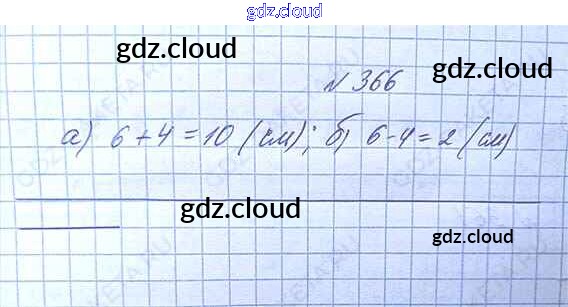 gdz.cloud
gdz.cloud
gdz.cloud
№ 366
а) 6 + 4 = 10 (см); б) 6 - 4 = 2 (см)
gdz.cloud
gdz.cloud